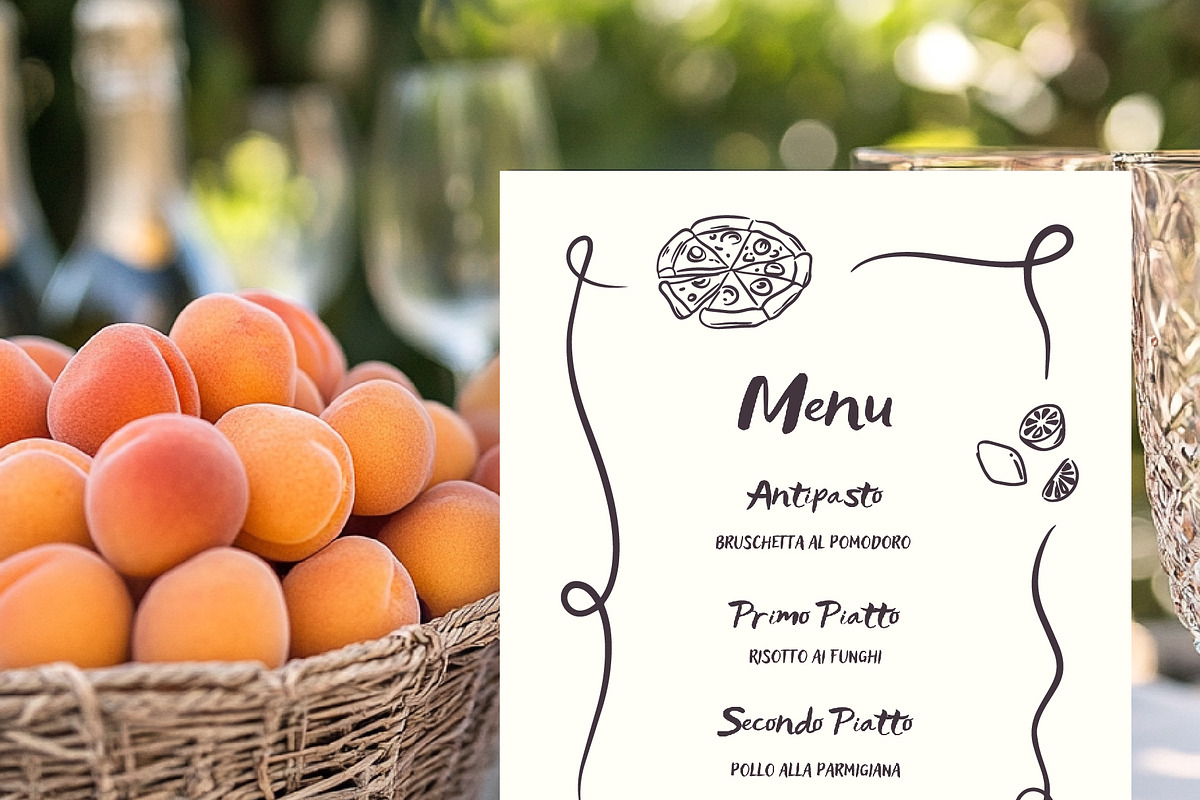 Menu
Antipasto
BRUSCHETTA AL POMODORO
Primo Piatto
RISOTTO AI FUNGHI
Secondo Piatto
POLLO ALLA PARMIGIANA